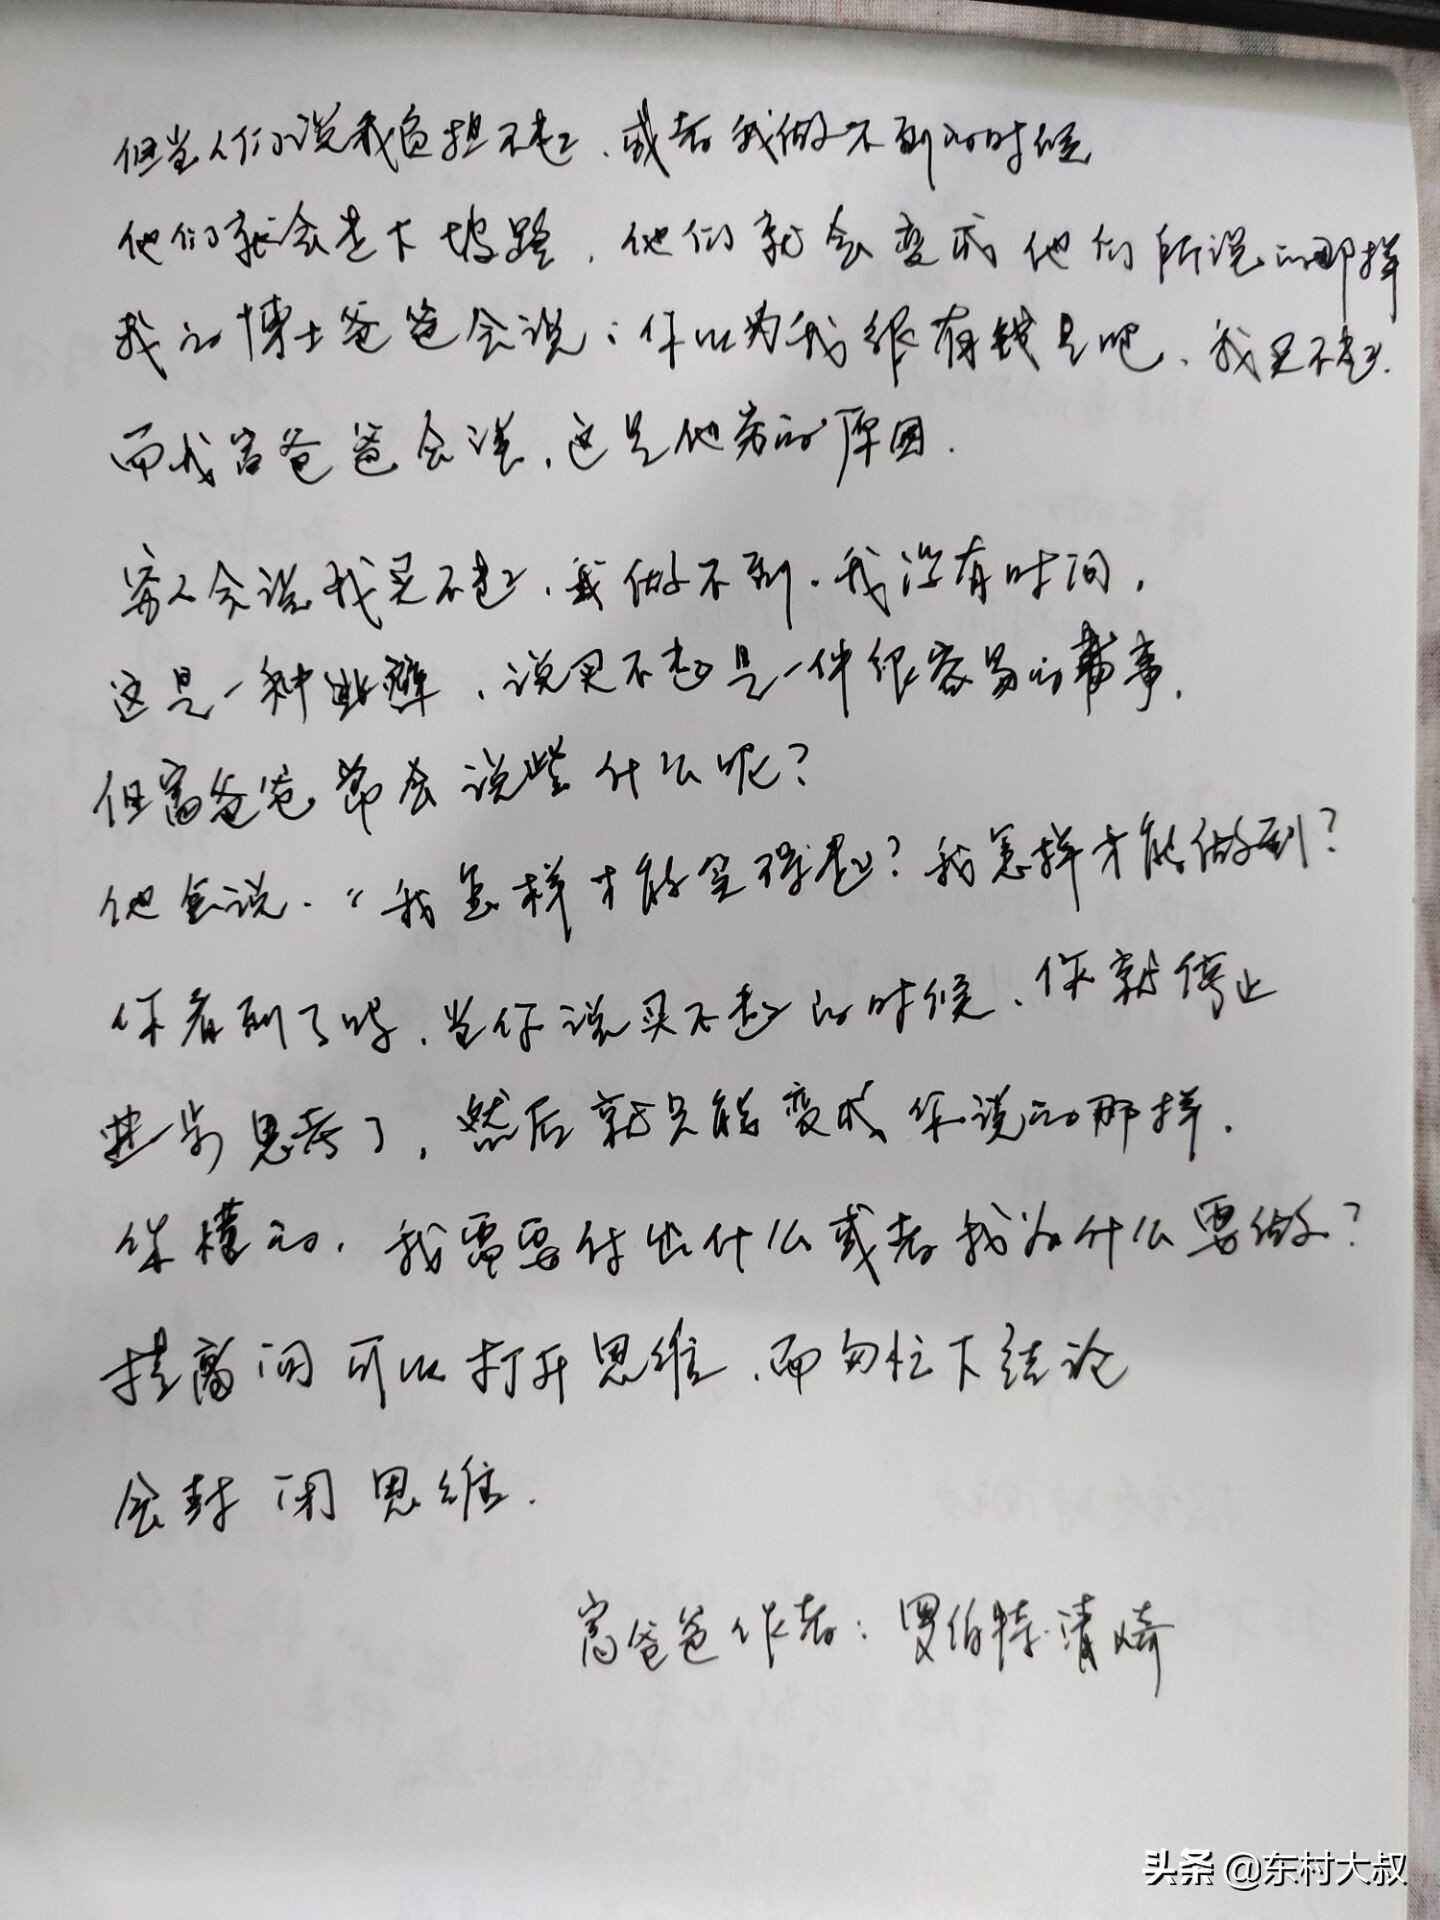 但当人们说我负担不起、或者我做不到的时候
他们就会走下坡路、他们就会变成他们所说的那样
我的博士爸爸会说：你以为我很有钱是吧、我买不起.
而我富爸爸会说、这是他穷的原因.
穷人会说我买不起、我做不到、我没有时间，
这是一种怪癖、说买不起是一件很容易的事.
但富爸爸常会说些什么呢？
他会说、“我怎样才能买得起？我怎样才能做到？
你看到了吗、当你说买不起的时候、你就停止
进步思考了，然后就只能变成你说的那样.
你懂的、我需要付出什么或者我为什么要做？
提高问可以打开思维、而匆忙下结论
会封闭思维.
富爸爸作者：罗伯特·清崎
头条 @东村大叔